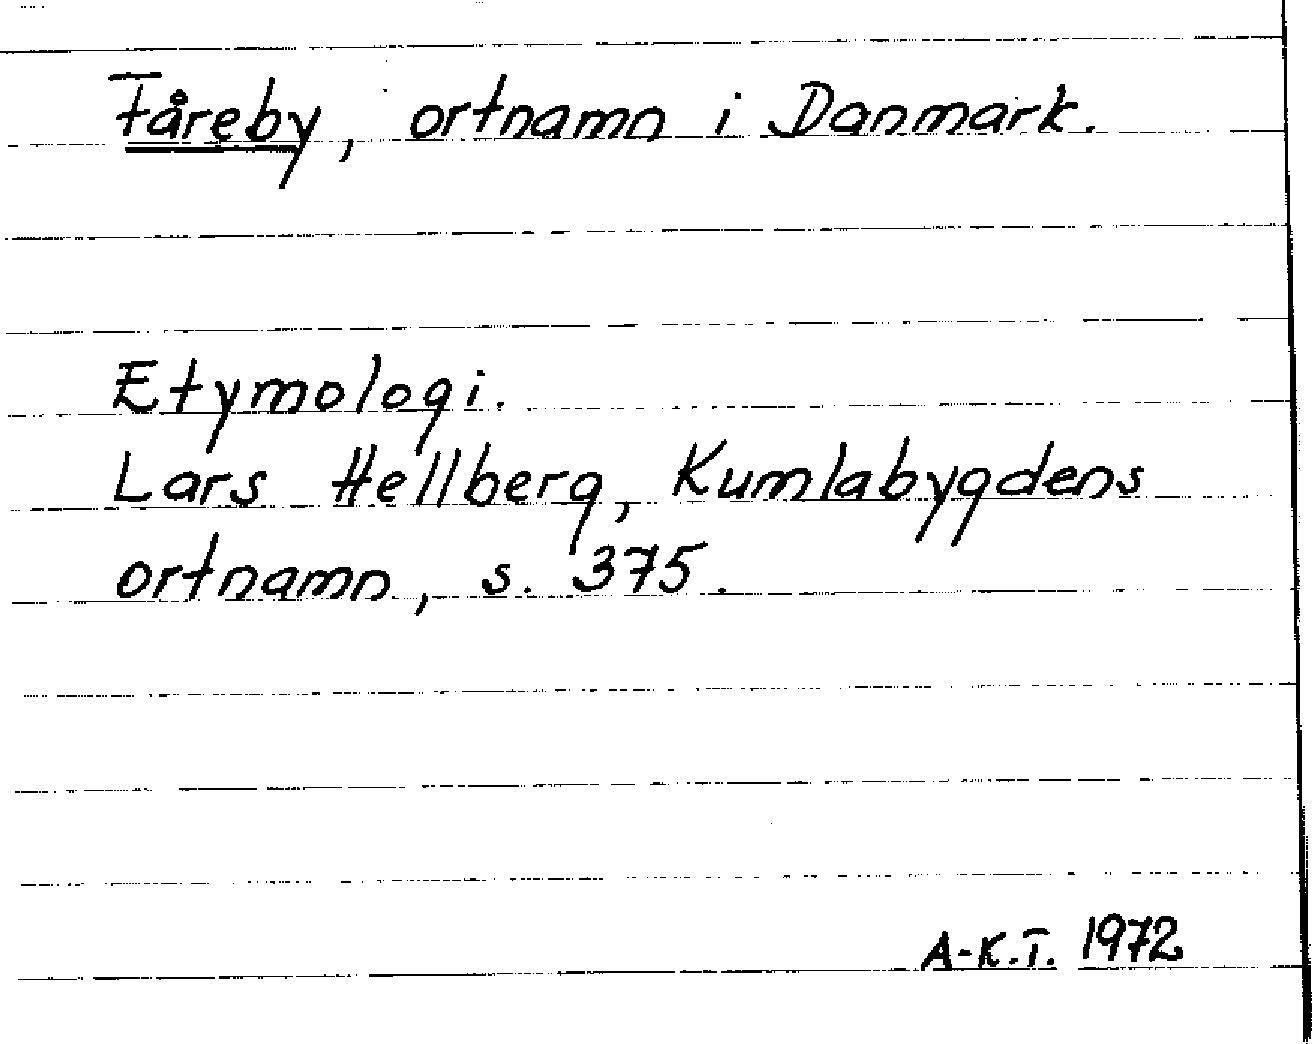 Fåreby, ortnamn i Danmark.
Etymologi.
Lars Hellberg, Kumlabygdens
ortnamn, s. 375.
A-K.T. 1972